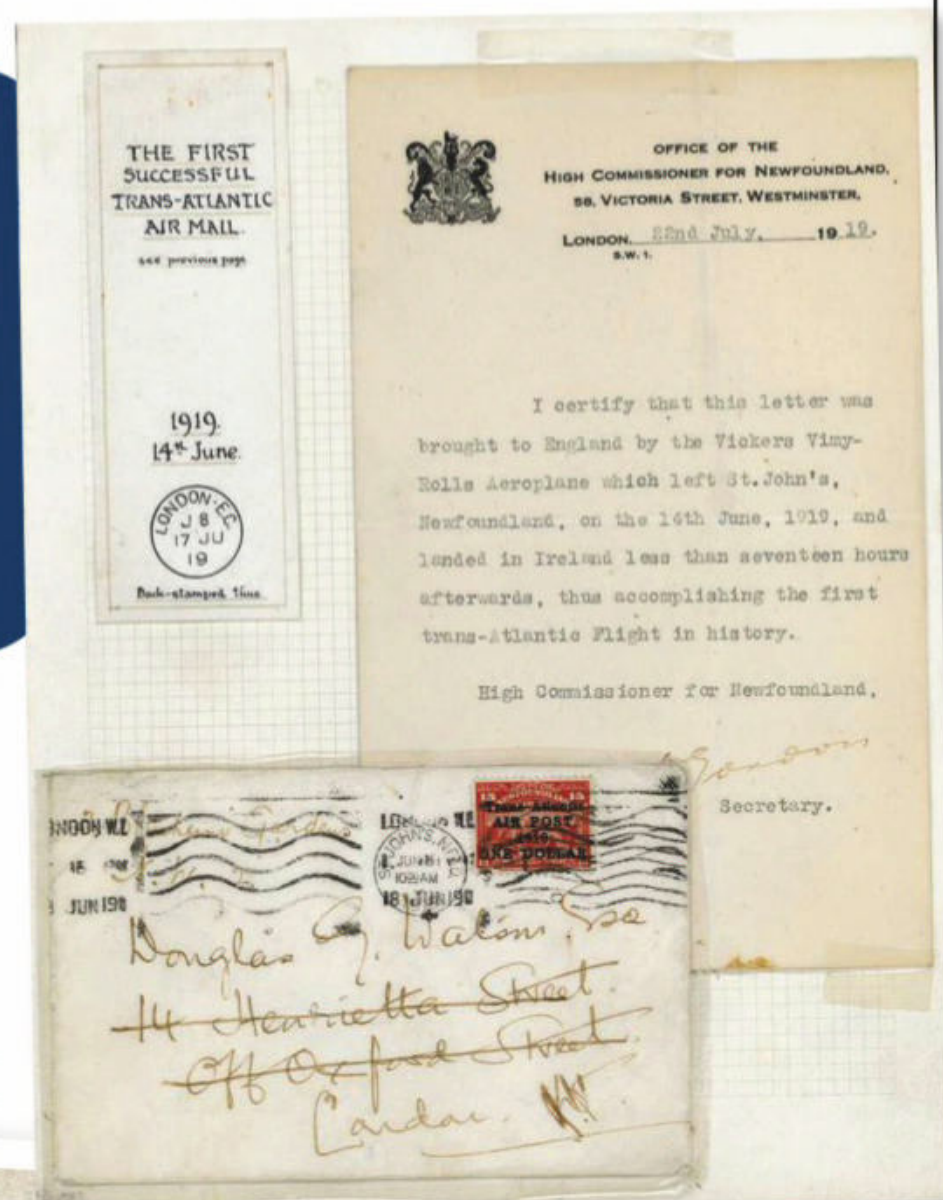 THE FIRST
SUCCESSFUL
TRANS-ATLANTIC
AIR MAIL.
see previous page
1919.
14th June.
LONDON. E.C.
J 8
17 JU
19
Back-stamped thus
OFFICE OF THE
HIGH COMMISSIONER FOR NEWFOUNDLAND,
58, VICTORIA STREET, WESTMINSTER,
LONDON, 22nd July, 1919.
S.W.1.
I certify that this letter was
brought to England by the Vickers Vimy-
Rolls Aeroplane which left St.John's,
Newfoundland, on the 14th June, 1919, and
landed in Ireland less than seventeen hours
afterwards, thus accomplishing the first
trans-Atlantic Flight in history.
High Commissioner for Newfoundland,
Gordon
Secretary.
15 15
Trans-Atlantic
AIR POST
1919
ONE DOLLAR
ST. JOHN'S. NFLD
JUN
10 AM
18 JUN 19
JUN 19
Douglas
14 Henrietta Street.
Off Oxford Street.
London. W.